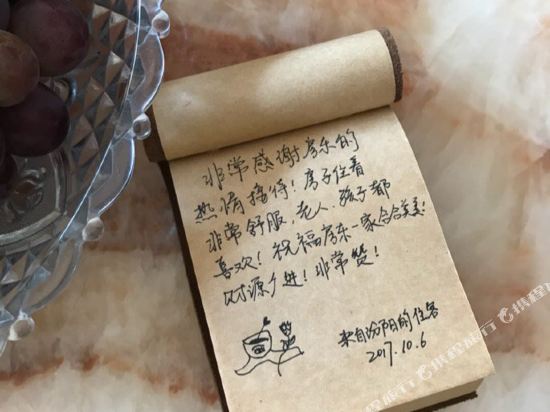 非常感谢房东的
热情接待！房子住着
非常舒服，老人、孩子都
喜欢！祝福房东一家合合美美！
财源广进！非常赞！
来自汾阳的住客
2017.10.6
携程旅行